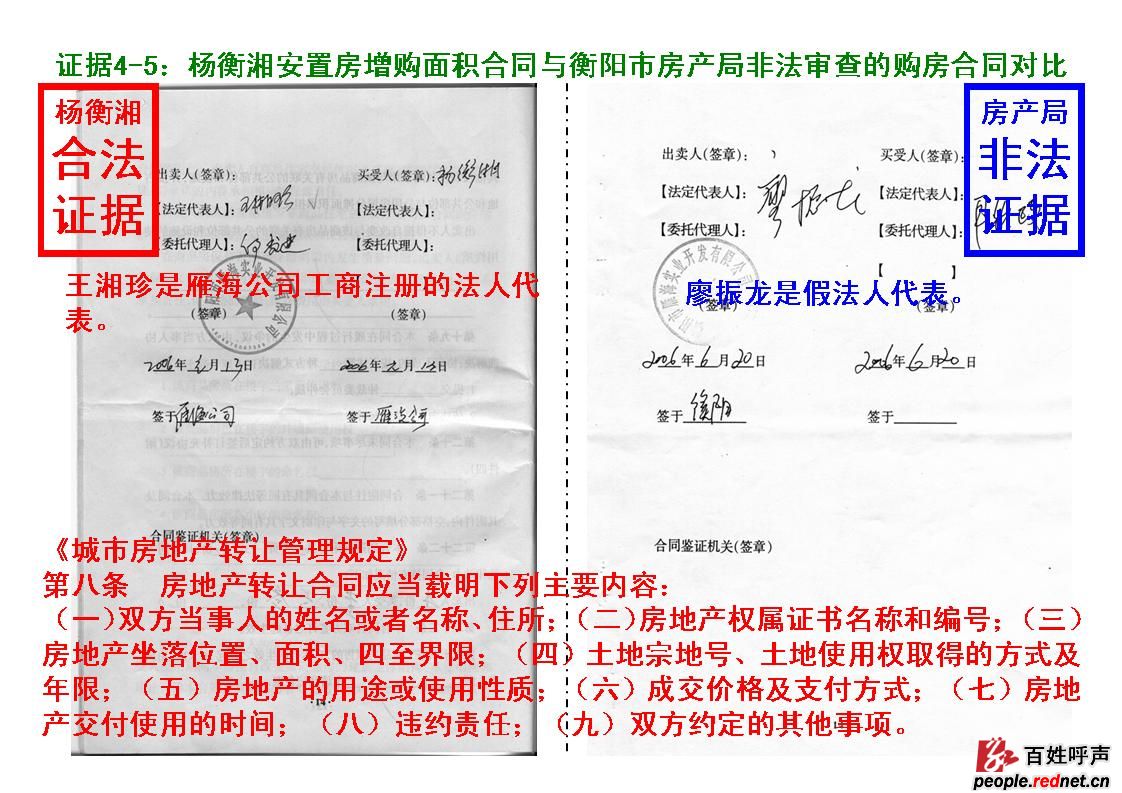 证据4-5：杨衡湘安置房增购面积合同与衡阳市房产局非法审查的购房合同对比
杨衡湘
合法
证据
出卖人(签章)：
买受人(签章)：杨衡湘
【法定代表人】：王湘珍
【法定代表人】：
【委托代理人】：
【委托代理人】：
(签章)
(签章)
2006年元月13日
2006年元月13日
签于雁海公司
签于雁海公司
合同鉴证机关(签章)
王湘珍是雁海公司工商注册的法人代
表。
房产局
非法
证据
出卖人(签章)：
买受人(签章)：
【法定代表人】：廖振龙
【法定代表人】：
【委托代理人】：
【委托代理人】：
【 】
(签章)
(签章)
廖振龙是假法人代表。
2006年6月20日
2006年6月20日
签于衡阳
签于
合同鉴证机关(签章)
《城市房地产转让管理规定》
第八条 房地产转让合同应当载明下列主要内容：
（一）双方当事人的姓名或者名称、住所；（二）房地产权属证书名称和编号；（三）
房地产坐落位置、面积、四至界限；（四）土地宗地号、土地使用权取得的方式及
年限；（五）房地产的用途或使用性质；（六）成交价格及支付方式；（七）房地
产交付使用的时间；（八）违约责任；（九）双方约定的其他事项。
百姓呼声
people.rednet.cn